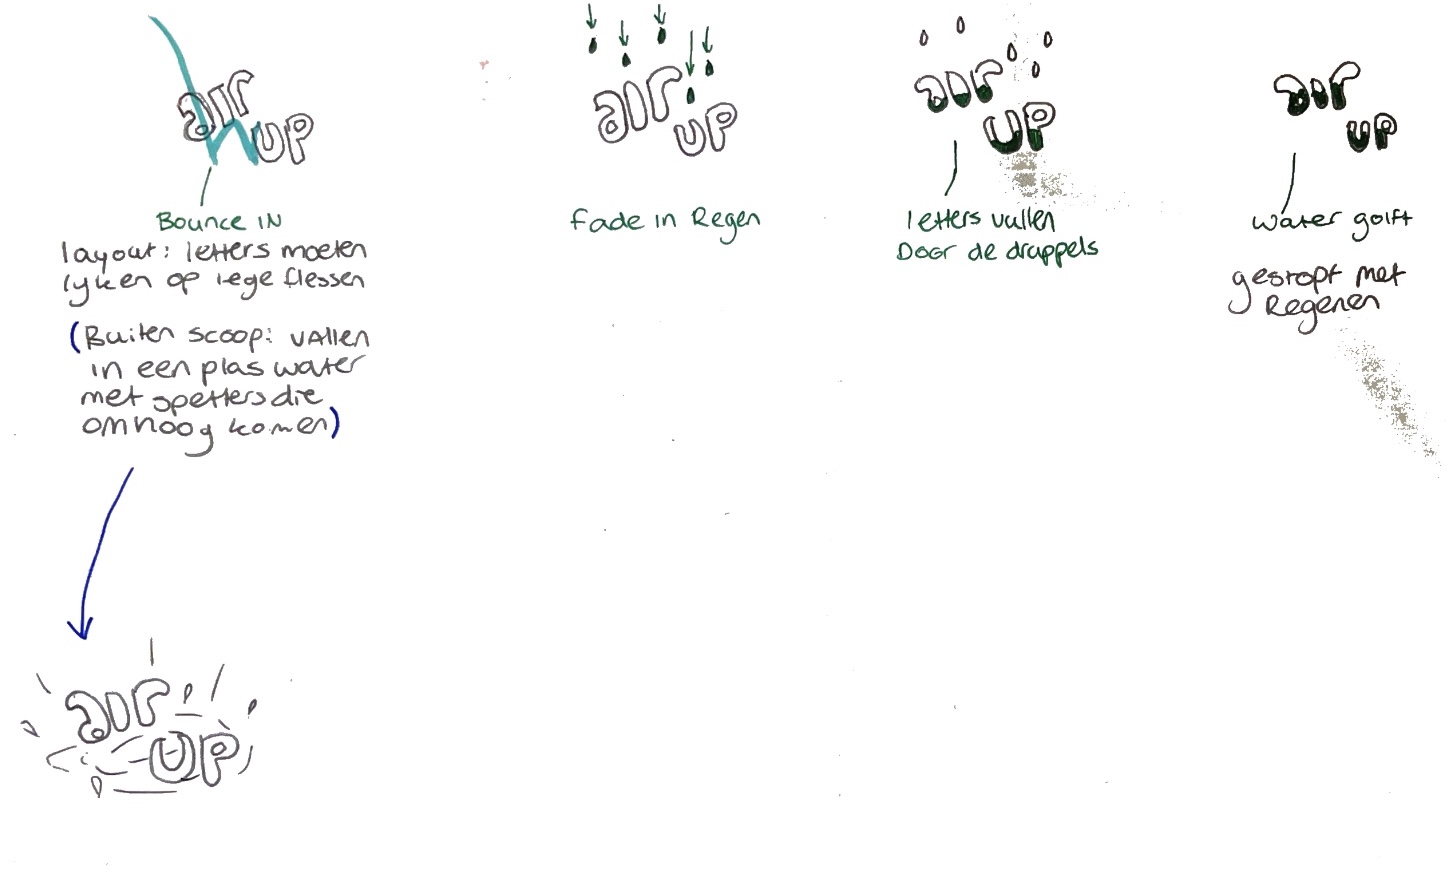 air
UP
Bounce IN
layout: letters moeten
lyken op lege flessen
(Buiten scoop: vallen
in een plas water
met spetters die
omhoog komen)
air
UP
air
UP
fade in Regen
air
UP
letters vullen
Door de druppels
air
UP
water golft
gestopt met
Regenen